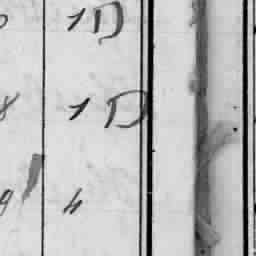 1 D
8 1 D
9 4